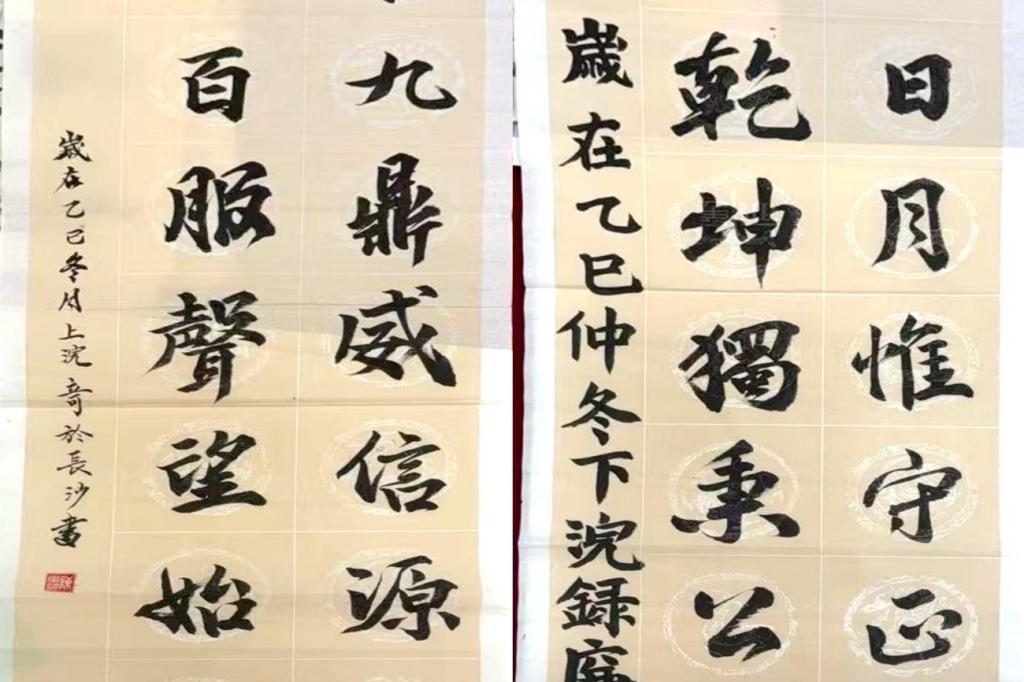 日月惟守正
乾坤獨秉公
歲在乙巳仲冬下浣録
九鼎威信源
百服聲望始
歲在乙巳冬月上浣奇於長沙書